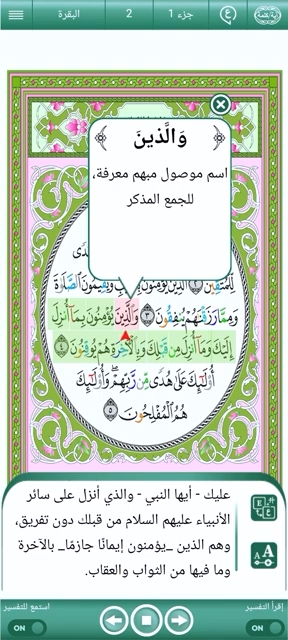 البقرة
2
جزء 1
وَالَّذينَ
اسم موصول مبهم معرفة،
للجمع المذكر
دًى
لِّلْمُتَّقِينَ ٢ الَّذِينَ يُؤْمِنُونَ بِ وَيُقِيمُونَ الصَّلَاةَ
وَمِمَّا رَزَقْنَاهُمْ يُنفِقُونَ ٣ وَالَّذِينَ يُؤْمِنُونَ بِمَا أُنزِلَ
إِلَيْكَ وَمَا أُنزِلَ مِن قَبْلِكَ وَبِالْآخِرَةِ هُمْ يُوقِنُونَ ٤
أُوْلَٰئِكَ عَلَىٰ هُدًى مِّن رَّبِّهِمْ ۖ وَأُوْلَٰئِكَ
هُمُ الْمُفْلِحُونَ ٥
عليك - أيها النبي - والذي أنزل على سائر
الأنبياء عليهم السلام من قبلك دون تفريق،
وهم الذين _يؤمنون إيمانًا جازمًا_ بالآخرة
وما فيها من الثواب والعقاب.
استمع للتفسير
إقرأ التفسير
ON
ON